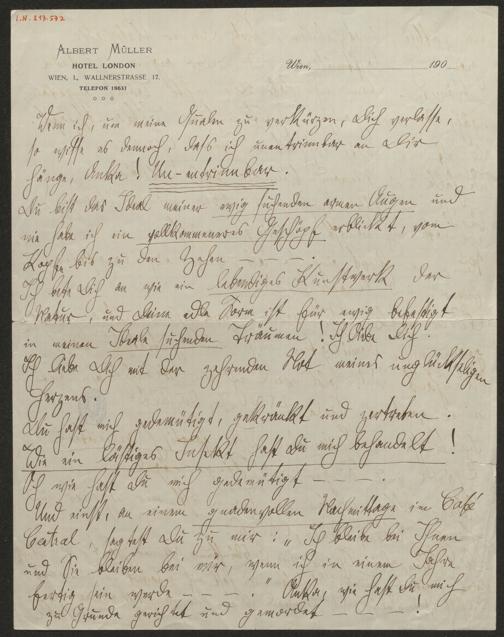 I.N. 217.572
ALBERT MÜLLER
HOTEL LONDON
WIEN, I., WALLNERSTRASSE 17.
TELEFON 18631
Wien, 190
Wenn ich, um meine Qualen zu verkürzen, Dich verlasse,
so wisse es dennoch, dass ich unentrinnbar an Dir
hänge, Anka! Un-entrinnbar.
Du bist das Ideal meiner ewig suchenden armen Augen und
nie habe ich ein vollkommeneres Geschöpf erblickt, vom
Kopfe bis zu den Zehen — — — .
Ich bete Dich an wie ein lebendiges Kunstwerk der
Natur, und Deine edle Form ist für ewig befestigt
in meinen Ideale suchenden Träumen! Ich liebe Dich.
Ich liebe Dich mit der zehrenden Not meines unglückseligen
Herzens.
Du hast mich gedemütigt, gekränkt und zertreten.
Wie ein lästiges Insekt hast Du mich behandelt!
Oh wie hast Du mich gedemütigt — — — .
Und einst, an einem gnadenvollen Nachmittage im Café
Central, sagtest Du zu mir: „Ich bleibe bei Ihnen
und Sie bleiben bei mir, wenn ich in einem Jahre
fertig sein werde — — — ." Anka, wie hast Du mich
zu Grunde gerichtet und gemordet — — !